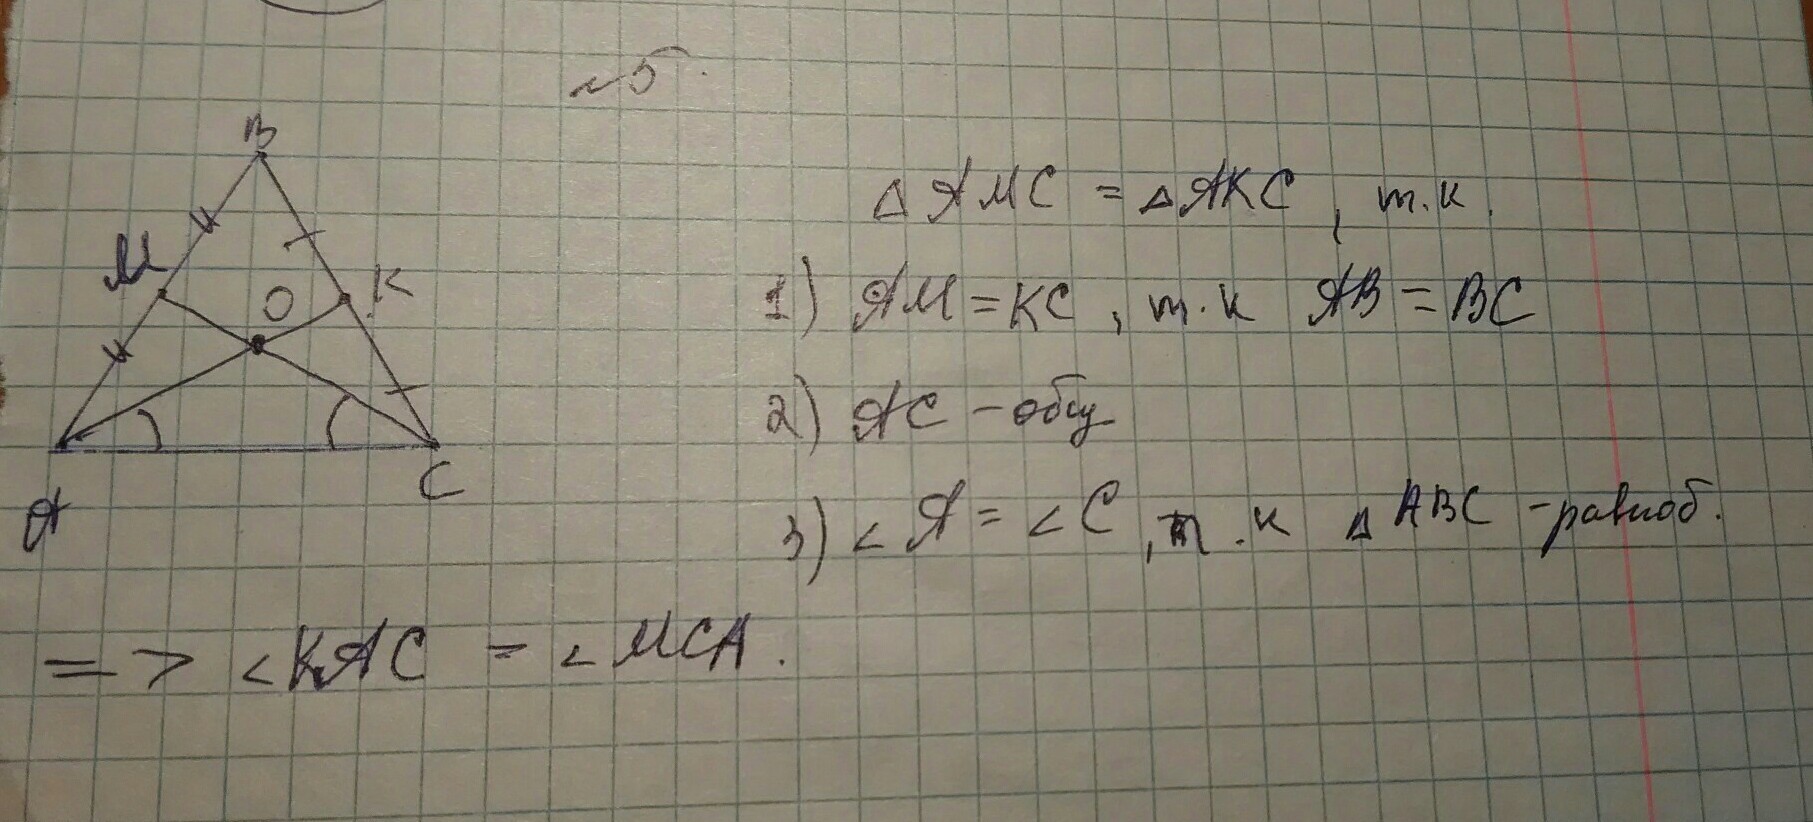 №5.
B
M
O
K
A
C
△ AMC = △AKC, т.к.
1) AM = KC, т.к AB = BC
2) AC - общ
3) ∠A = ∠C, т.к △ ABC - равноб.
=> ∠KAC = ∠MCA.